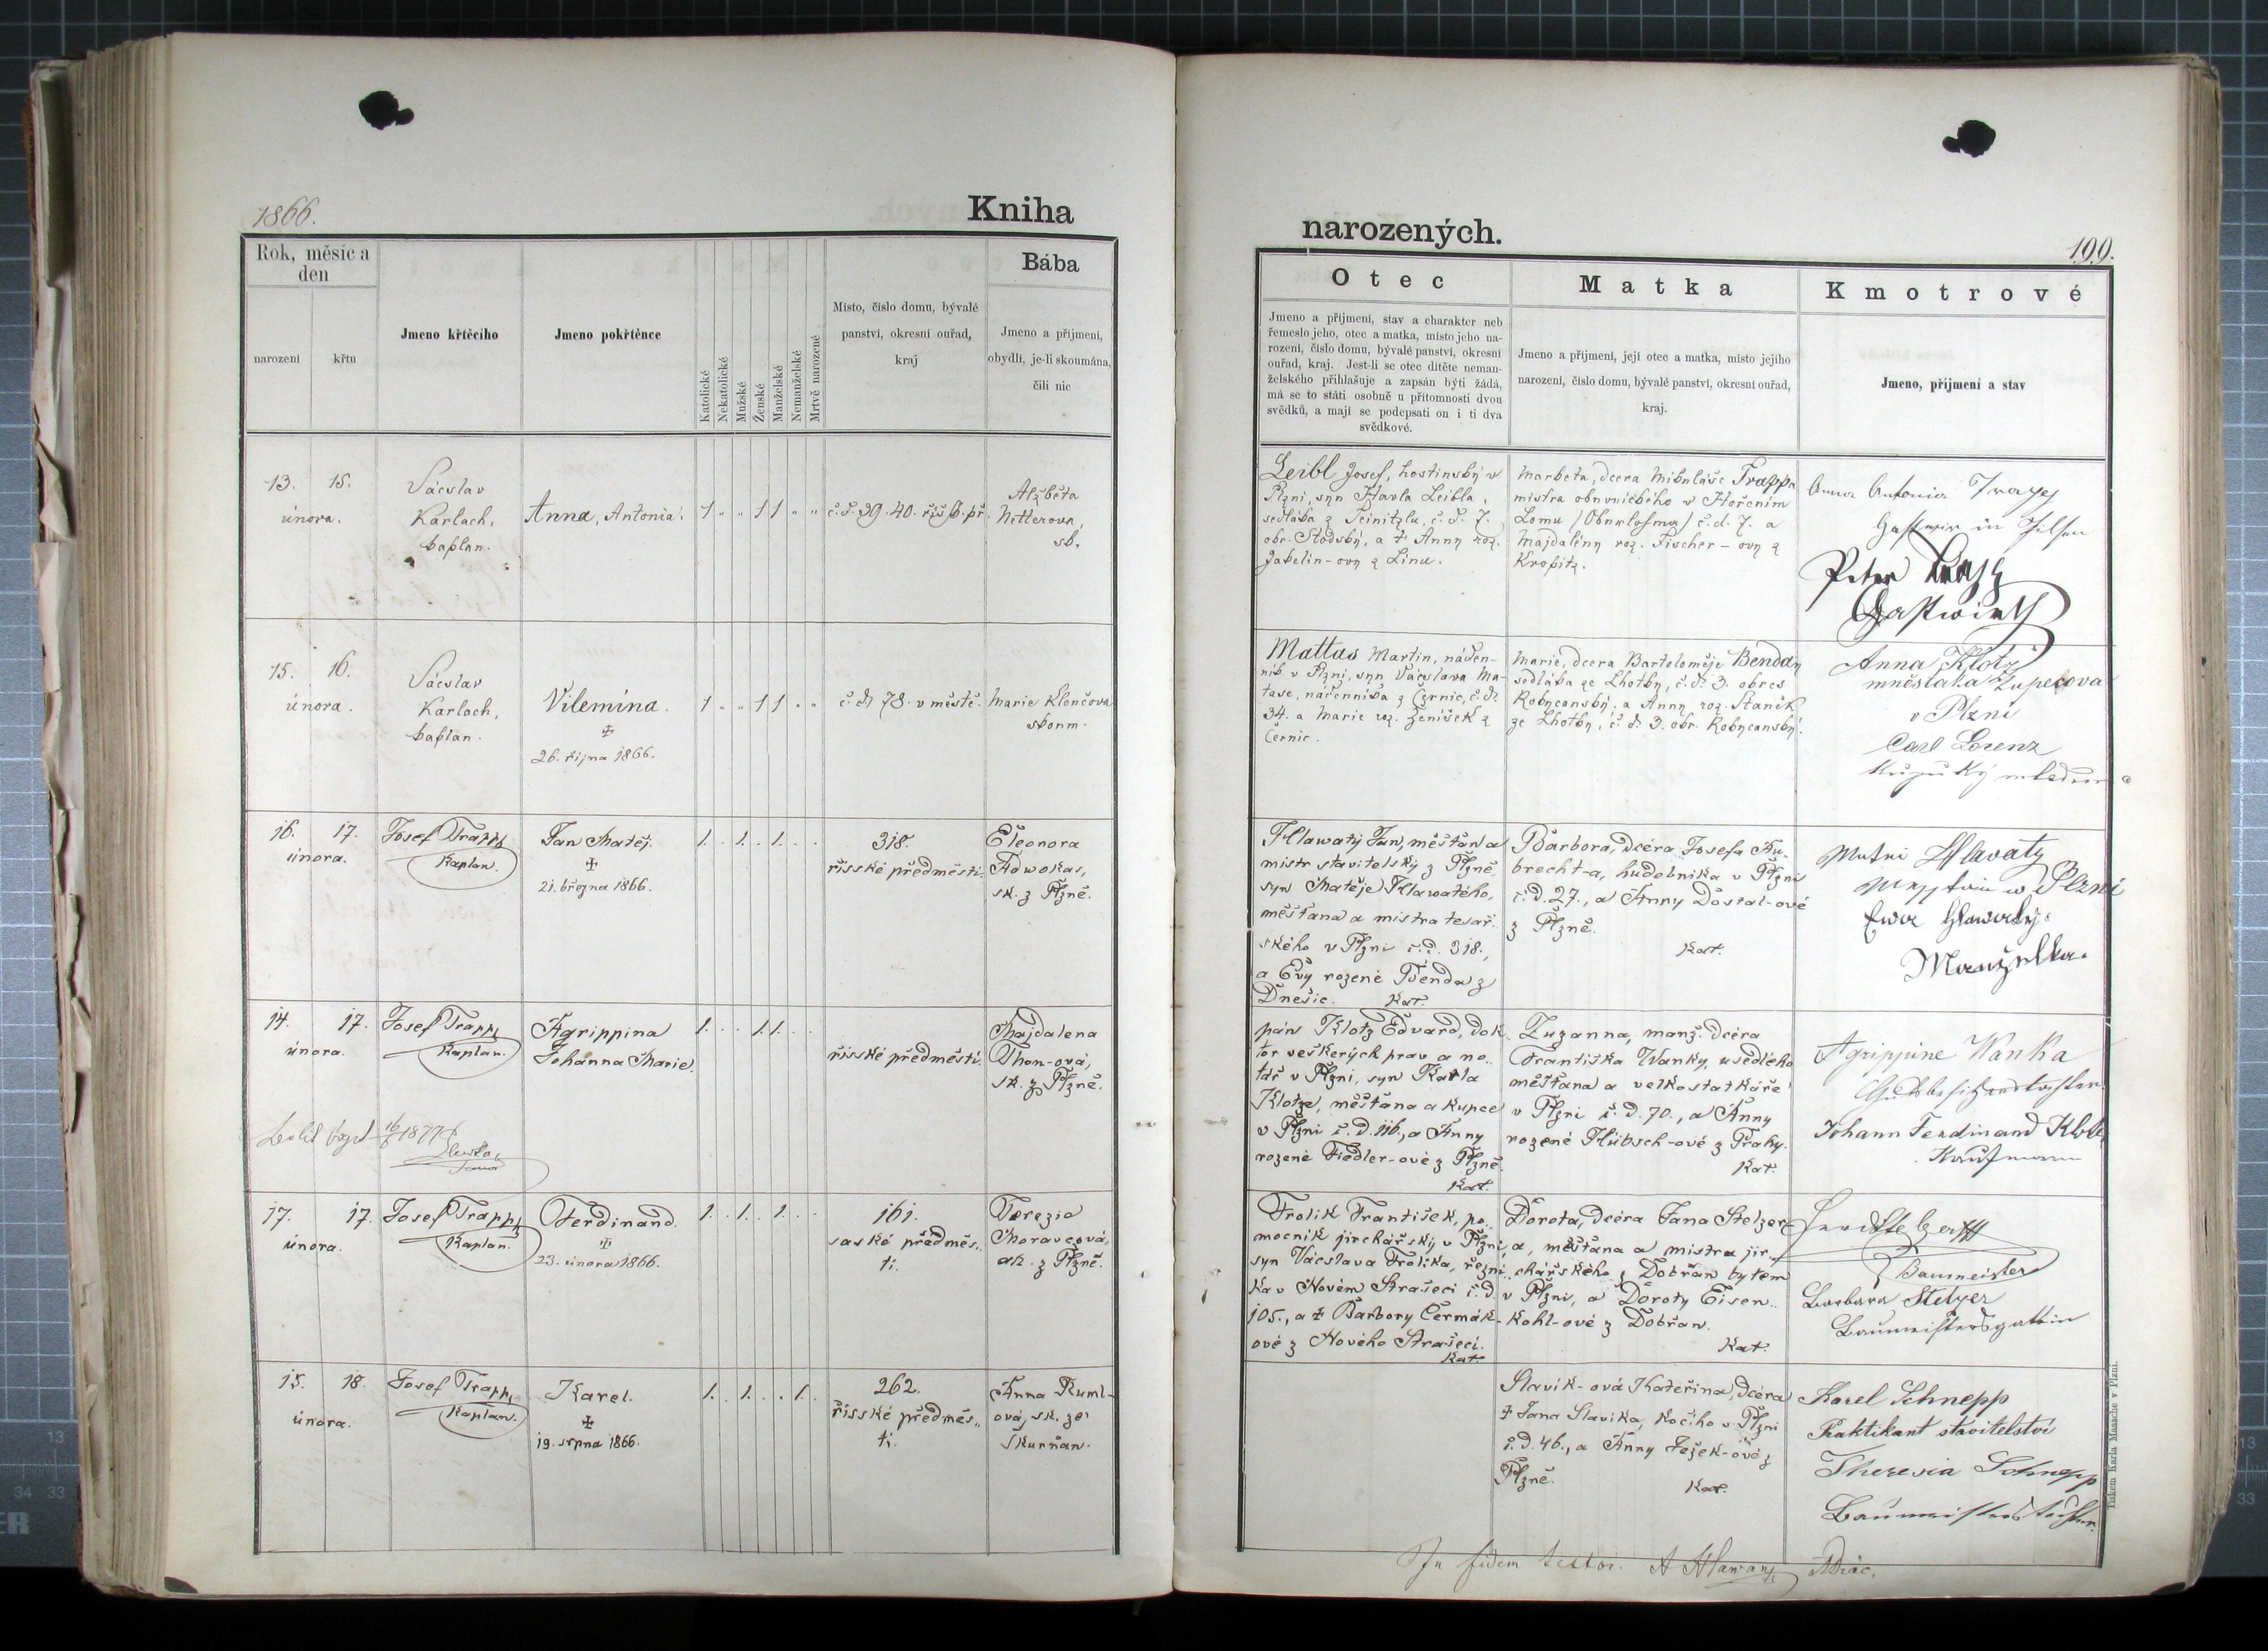 1866.
Kniha
Rok, měsíc a
den
narození
křtu
Jmeno křtěcího
Jmeno pokřtěnce
Katolické
Nekatolické
Mužské
Ženské
Manželské
Nemanželské
Mrtvě narozené
Místo, číslo domu, bývalé
panství, okresní ouřad,
kraj
Bába
Jmeno a příjmení,
obydlí, je-li skoumána,
čili nic
13. 15.
února.
Václav
Karlach,
kaplan.
Anna, Antonia.
1 " " 1 1 " "
č. d. 39. 40. říš. př.
Alžběta
sk.
15. 16.
února.
Václav
Karlach,
kaplan.
Vilemína.
✠
26. října 1866.
1 " " 1 1 " "
č. d. 78. v městě.
Marie Klenčova
skoum.
16. 17.
února.
Josef Trapp,
Kaplan.
Jan Matěj.
✠
21. března 1866.
1. . 1. . 1. . .
318.
říšské předměstí.
Eleonora
Adwokas,
sk. z Plzně.
14. 17.
února.
Josef Trapp,
Kaplan.
Agrippina
Johanna Marie.
1. . . 1. 1. . .
říšské předměstí.
Majdalena
Thon-ová,
sk. z Plzně.
17. 17.
února.
Josef Trapp,
Kaplan.
Ferdinand.
✠
23. února 1866.
1. . 1. . 1. . .
161.
saské předměs..
tí.
Terezie
Moravcová,
ak. z Plzně.
15. 18.
února.
Josef Trapp,
Kaplan.
Karel.
✠
19. srpna 1866.
1. . 1. . . 1. .
262.
říšské předměs..
tí.
Anna Ruml-
ová, sk. ze
Skurňan.
narozených.
199.
Otec
Jmeno a příjmení, stav a charakter neb
řemeslo jeho, otec a matka, místo jeho na-
rození, číslo domu, bývalé panství, okresní
ouřad, kraj. Jest-li se otec dítěte neman-
želského přihlašuje a zapsán býti žádá,
má se to státi osobně u přítomnosti dvou
svědků, a mají se podepsati on i ti dva
svědkové.
Matka
Jmeno a příjmení, její otec a matka, místo jejího
narození, číslo domu, bývalé panství, okresní ouřad,
kraj.
Kmotrové
Jmeno, příjmení a stav
Leibl Josef, hostinský v
Plzni, syn Karla Leibla,
sedláka z Teinitzlu, č. d. 7.,
okr. Stodský, a ✝ Anny roz.
z Línu.
Marketa, dcera Mikuláše Trappa
mistra v Hořením
Lomu č. d. 7. a
Majdalény roz. Fischer-ovy z
Kropitz.
Anna Antonia
in Pilsen
Peter
Gastwirth
Mattas Martin, náden-
ník v Plzni, syn Václava Ma-
tase, nádenníka z Černic, č. d.
34. a Marie roz. Ženíšek z
Černic.
Marie, dcera Bartoloměje Bendy
sedláka ze Lhotky, č. d. 3. okres
Rokycanský, a Anny roz. Staněk
ze Lhotky, č. d. 3. okr. Rokycanský.
Anna Klotz
v Plzni
Carl Lorenz
Hlawatý Jan, měšťan a
mistr stavitelský z Plzně,
syn Matěje Hlawatého,
měšťana a mistra tesař-
ského v Plzni č. d. 318.,
a Evy rozené Benda z
Dnešic. Kat.
Barbora, dcéra Josefa Au-
brecht-a, hudebníka v Plzni
č. d. 27., a Anny Dostal-ové
z Plzně.
Kat.
Hlavatý
w Plzni
Ewa Hlawatý
Manželka.
pán Klotz Edvard, dok-
tor veškerých prav a no-
tář v Plzni, syn Karla
Klotze, měšťana a kupce
v Plzni č. d. 116., a Anny
rozené Fiedler-ové z Plzně.
Kat.
Zuzanna, manž. dcéra
Františka Wanky, usedlého
měšťana a velkostatkáře
v Plzni č. d. 70., a Anny
rozené Hübsch-ové z Prahy.
Kat.
Agrippine Wanka
Johann Ferdinand Klotz
Kaufmann
Frolík František, po..
mocník jirchářský v Plzni,
syn Václava Frolíka, řezní..
ka v Novém Strašecí č. d.
105., a ✝ Barbory Čermák-
ové z Nového Strašecí.
Kat.
Dorota, dcéra Jana Stelzer-
a, měšťana a mistra jir-
chářského z Dobřan bytem
v Plzni, a Doroty Eisen..
kohl-ové z Dobřan.
Kat.
Baumeister
Barbara Stelzer
Baumeistersgattin
Slavík-ová Kateřina, dcéra
✝ Jana Slavíka, kočího v Plzni
č. d. 46., a Anny Ježek-ové z
Plzně.
Kat.
Karel Schnepp
Praktikant stavitelství
Theresia Schnepp
Baumeisterstochter.
Tiskem Karla Maasche v Plzni.
In fidem testor.